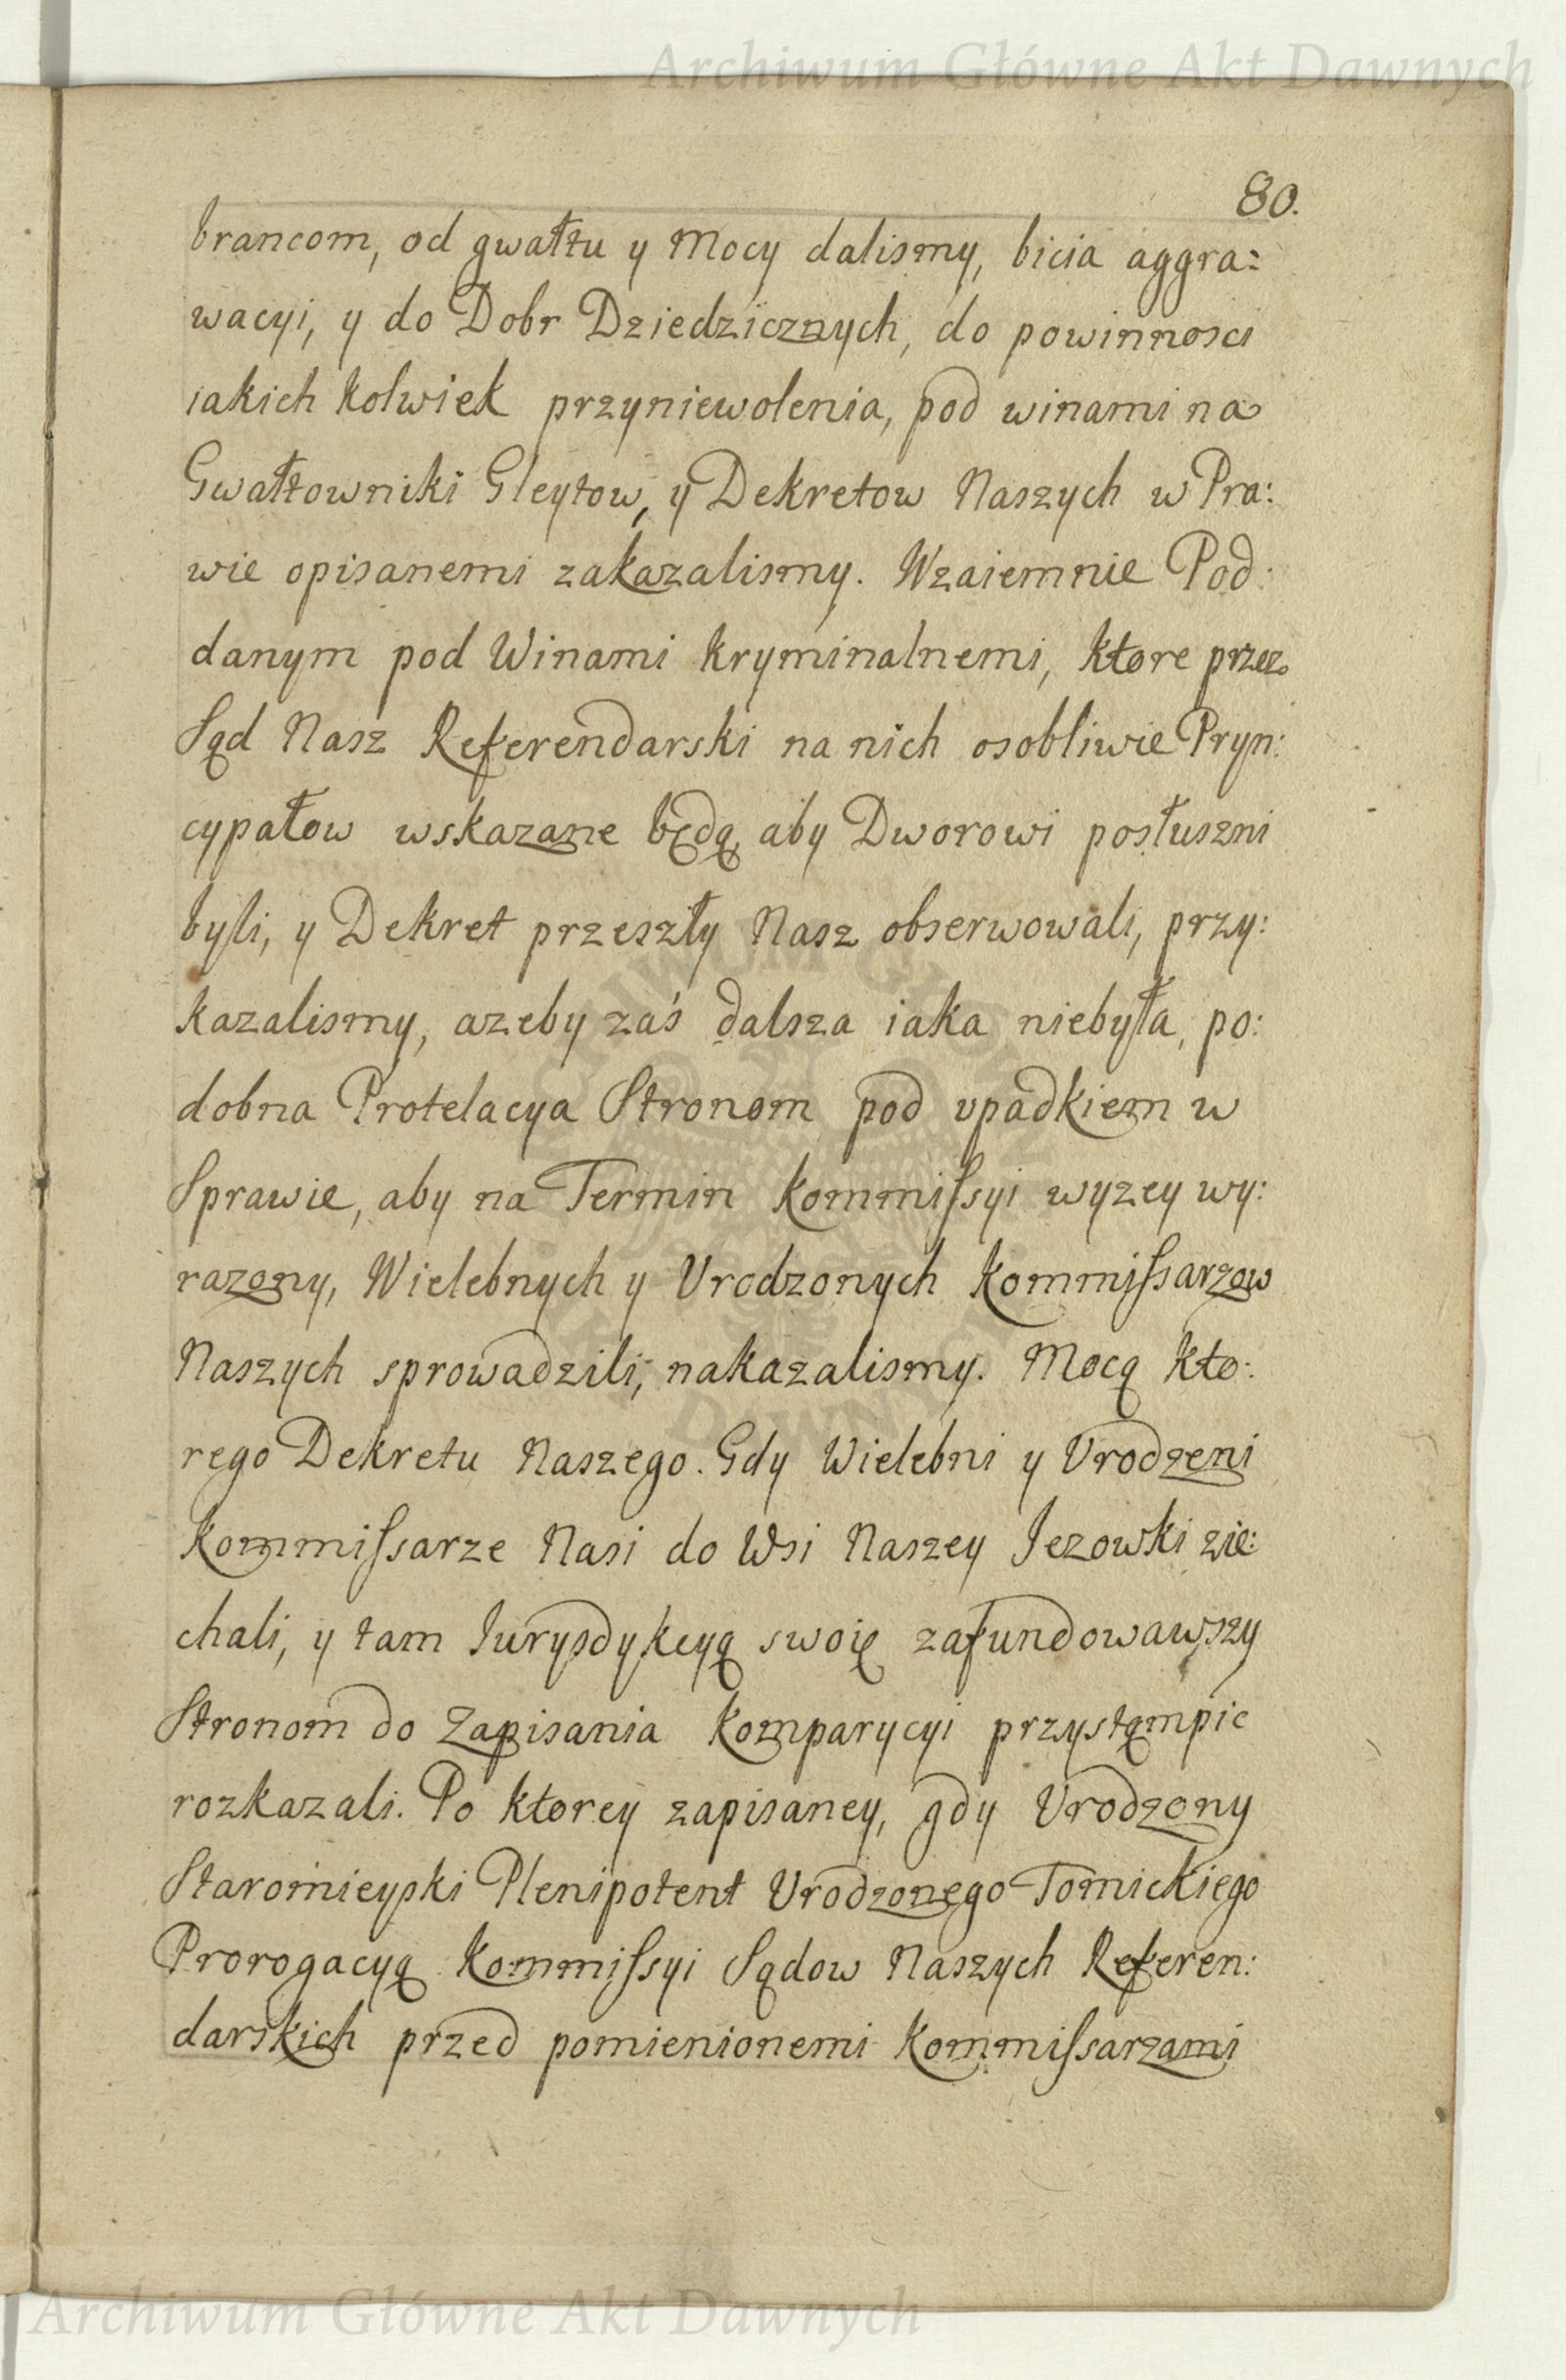 Archiwum Główne Akt Dawnych
80.
brancom, od gwałtu y Mocy dalismy, bicia aggra:
wacyi, y do Dobr Dziedzicznych, do powinnosci
iakich kolwiek przyniewolenia, pod winami na
Gwałtowniki Gleytow, y Dekretow Naszych w Pra:
wie opisanemi zakazalismy. Wzaiemnie Pod:
danym pod Winami kryminalnemi, ktore przez
Sąd Nasz Referendarski na nich osobliwie Pryn:
cypałow wskazane będą, aby Dworowi posłuszni
byli, y Dekret przeszły Nasz obserwowali, przy:
kazalismy, azeby zaś dalsza iaka niebyła, po:
dobna Protelacya Stronom pod upadkiem w
Sprawie, aby na Termin kommissyi wyzey wy:
razony, Wielebnych y Urodzonych kommissarzow
Naszych sprowadzili, nakazalismy. Mocą kto:
rego Dekretu Naszego. Gdy Wielebni y Urodzeni
kommissarze Nasi do Wsi Naszey Jezowski zie:
chali, y tam Jurysdykcyą swoię zafundowawszy
Stronom do Zapisania komparycyi przystąmpic
rozkazali. Po ktorey zapisaney, gdy Urodzony
Staromieyski Plenipotent Urodzonego Tomickiego
Prorogacyą kommissyi Sądow Naszych Referen:
darskich przed pomienionemi kommissarzami
Archiwum Główne Akt Dawnych